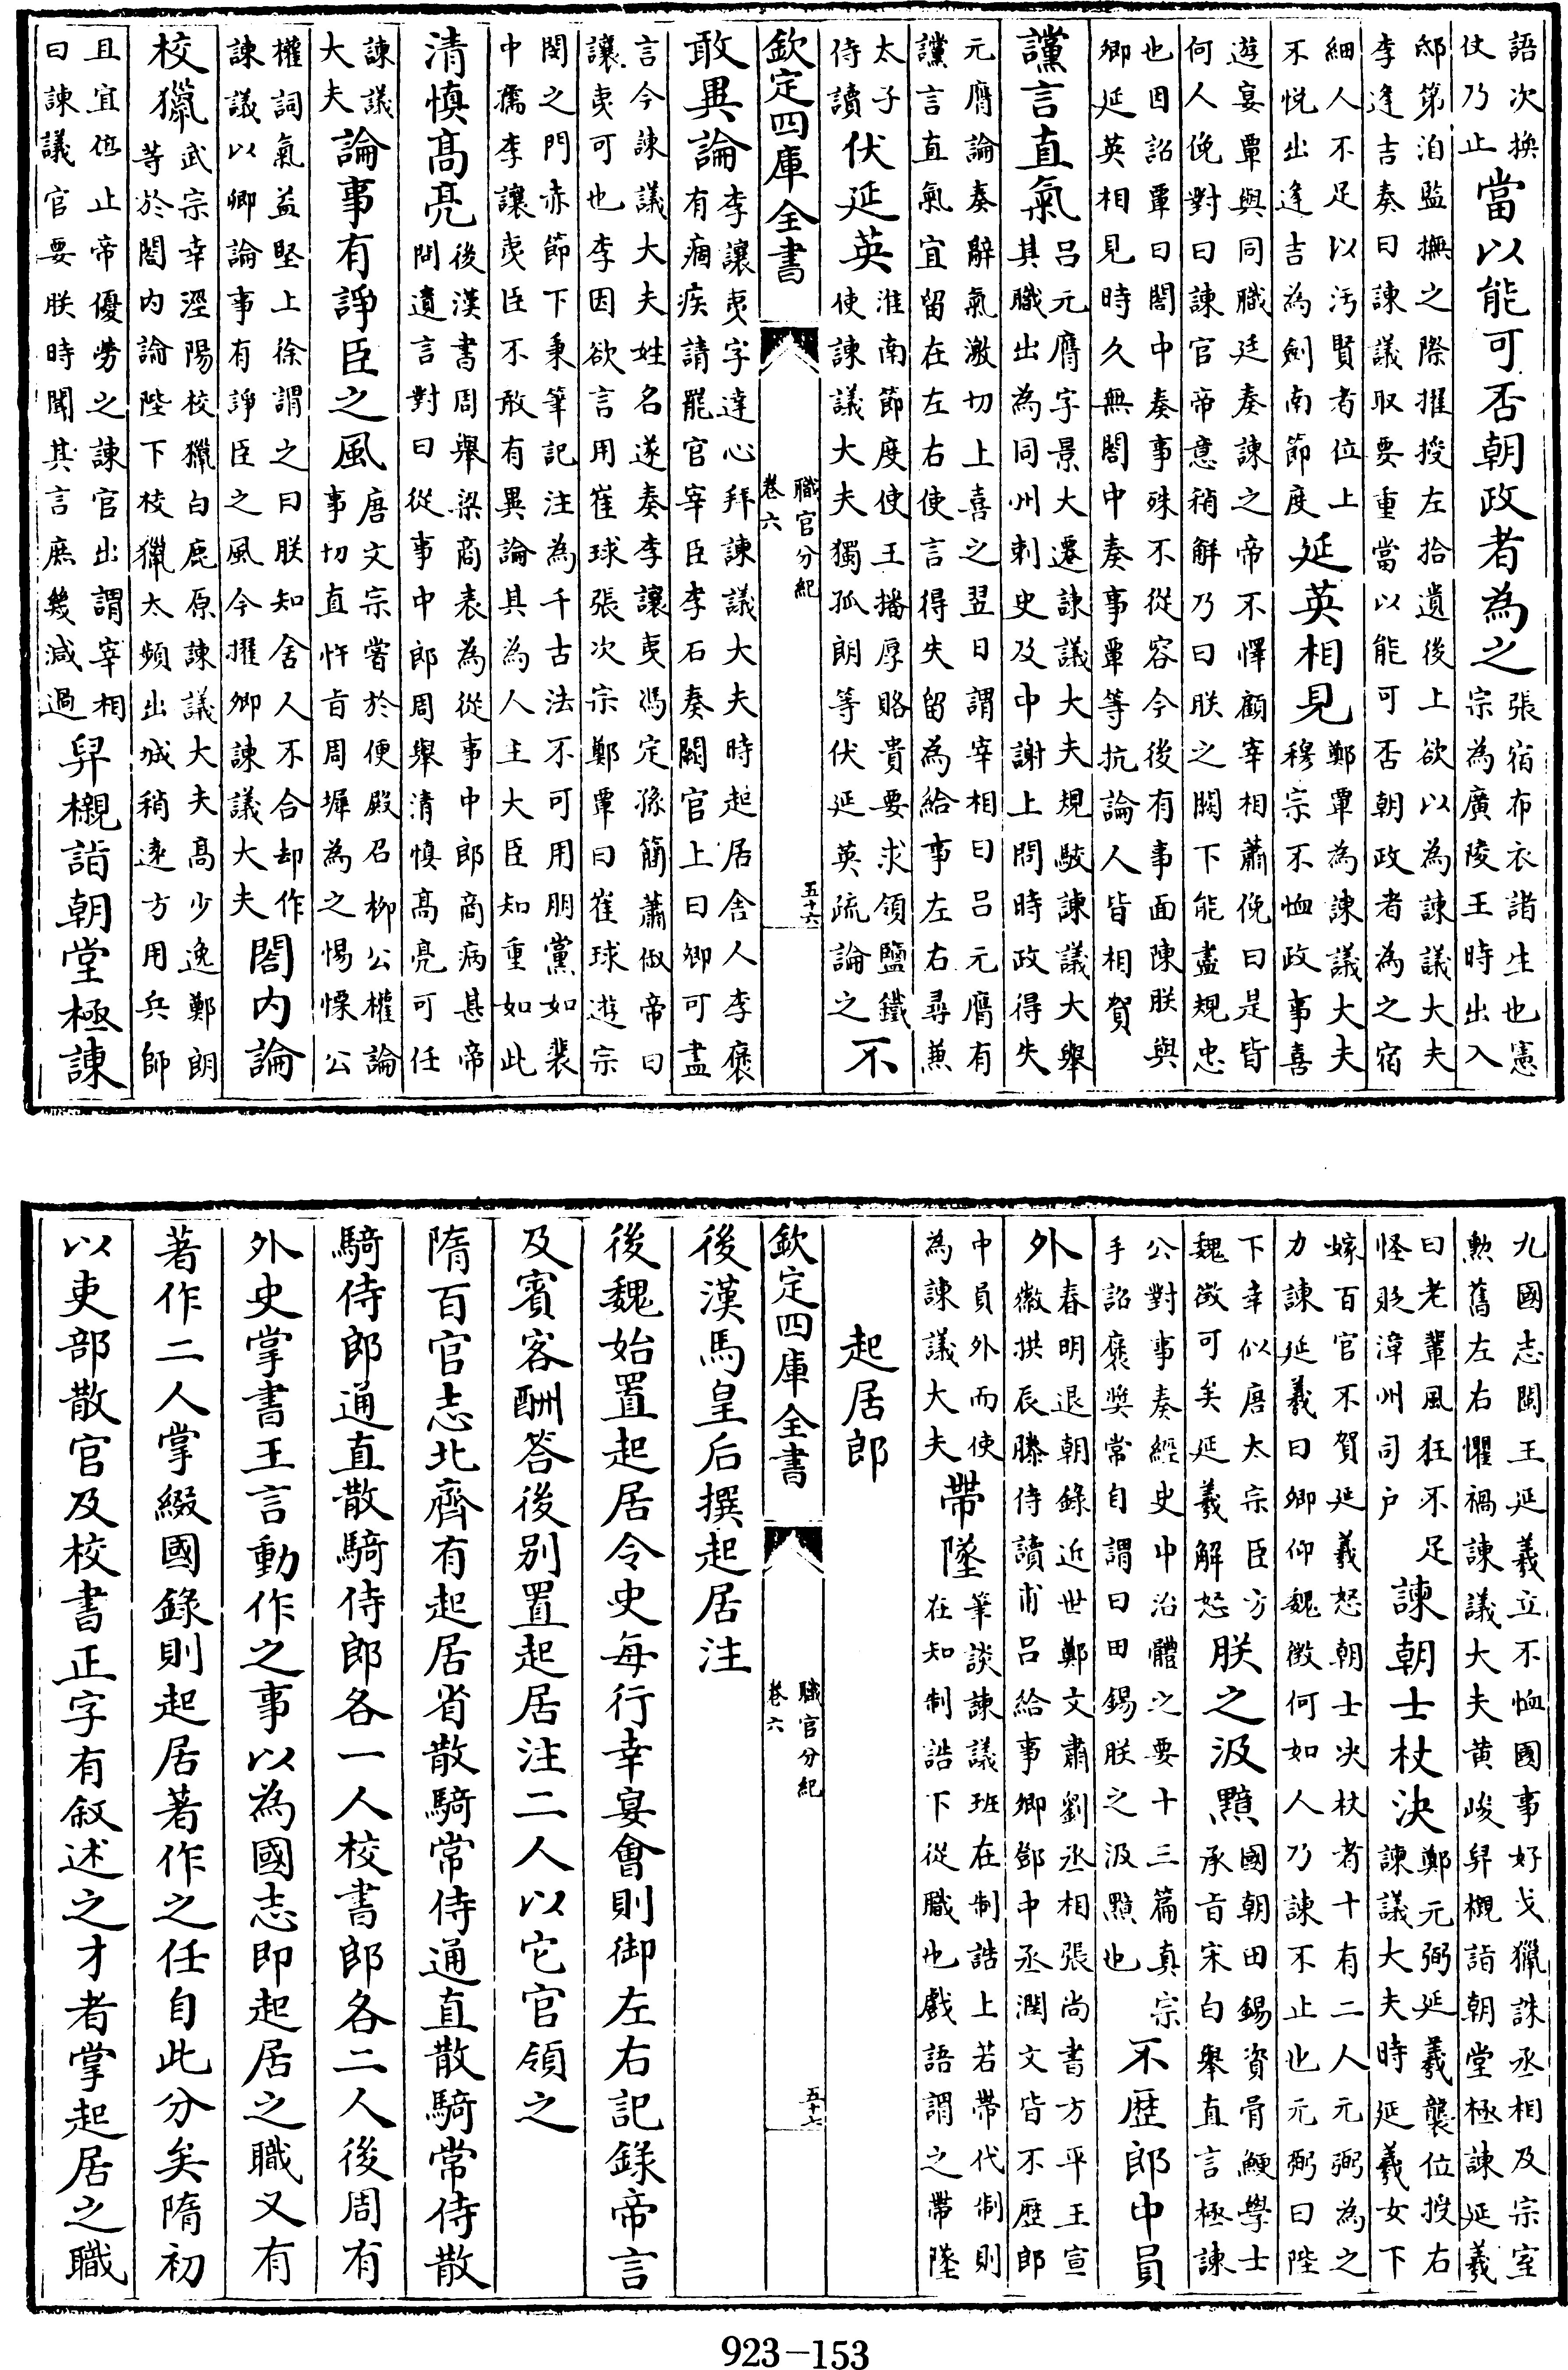 語次換仗乃止當以能可否朝政者為之張宿布衣諸生也憲宗為廣陵王時出入
邸第洎監撫之際擢授左拾遺後上欲以為諫議大夫李逢吉奏曰諫議取要重當以能可否朝政者為之宿
細人不足以汚賢者位上不悅出逢吉為劍南節度延英相見鄭覃為諫議大夫穆宗不恤政事喜
遊宴覃與同職廷奏諫之帝不懌顧宰相蕭俛曰是皆何人俛對曰諫官帝意稍解乃曰朕之闕下能盡規忠
也因詔覃曰閤中奏事殊不從容今後有事面陳朕與卿延英相見時久無閤中奏事覃等抗論人皆相賀
讜言直氣呂元膺字景大遷諫議大夫規駮諫議大舉其職出為同州刺史及中謝上問時政得失
元膺論奏辭氣激切上喜之翌日謂宰相曰呂元膺有讜言直氣宜留在左右使言得失留為給事左右尋兼
太子侍讀伏延英淮南節度使王播厚賂貴要求領鹽鐵使諫議大夫獨孤朗等伏延英疏論之不
欽定四庫全書
職官分紀
卷六
五十六
敢異論李讓夷字達心拜諫議大夫時起居舍人李褒有痼疾請罷官宰臣李石奏闕官上曰卿可盡
言今諫議大夫姓名遂奏李讓夷馮定孫簡蕭俶帝曰讓夷可也李因欲言用崔球張次宗鄭覃曰崔球遊宗
閔之門赤節下秉筆記注為千古法不可用朋黨如裴中孺李讓夷臣不敢有異論其為人主大臣知重如此
清慎高亮後漢書周舉梁商表為從事中郎商病甚帝問遺言對曰從事中郎周舉清慎高亮可任
諫議大夫論事有諍臣之風唐文宗嘗於便殿召柳公權論事切直忤旨周墀為之惕慄公
權詞氣益堅上徐謂之曰朕知舍人不合却作諫議以卿論事有諍臣之風今擢卿諫議大夫閤内論
校獵武宗幸涇陽校獵白鹿原諫議大夫高少逸鄭朗等於閤内論陛下校獵太頻出城稍遠方用兵師
且宜停止帝優勞之諫官出謂宰相曰諫議官要朕時聞其言庶幾減過舁櫬詣朝堂極諫
九國志閩王延羲立不恤國事好戈獵誅丞相及宗室勲舊左右懼禍諫議大夫黄峻舁櫬詣朝堂極諫延羲
曰老輩風狂不足怪貶漳州司户諫朝士杖決鄭元弼延羲襲位授右諫議大夫時延羲女下
嫁百官不賀延羲怒朝士决杖者十有二人元弼為之力諫延羲曰卿仰魏徵何如人乃諫不止也元弼曰陛
下幸似唐太宗臣方魏徵可矣延羲解怒朕之汲黯國朝田錫資骨鯁學士承旨宋白舉直言極諫
公對事奏經史中治體之要十三篇真宗手詔褒奬常自謂曰田錫朕之汲黯也不歴郎中員
外春明退朝錄近世鄭文肅劉丞相張尚書方平王宣徽拱辰滕侍讀甫呂給事卿鄧中丞潤文皆不歴郎
中員外而使為諫議大夫帶墜筆談諫議班在制誥上若帶代制則在知制誥下從職也戲語謂之帶墜
起居郎
欽定四庫全書
職官分紀
卷六
五十六
後漢馬皇后撰起居注
後魏始置起居令史每行幸宴會則御左右記錄帝言
及賓客酬答後别置起居注二人以它官領之
隋百官志北齊有起居省散騎常侍通直散騎常侍散
騎侍郎通直散騎侍郎各一人校書郎各二人後周有
外史掌書王言動作之事以為國志即起居之職又有
著作二人掌綴國錄則起居著作之任自此分矣隋初
以吏部散官及校書正字有叙述之才者掌起居之職
923-153